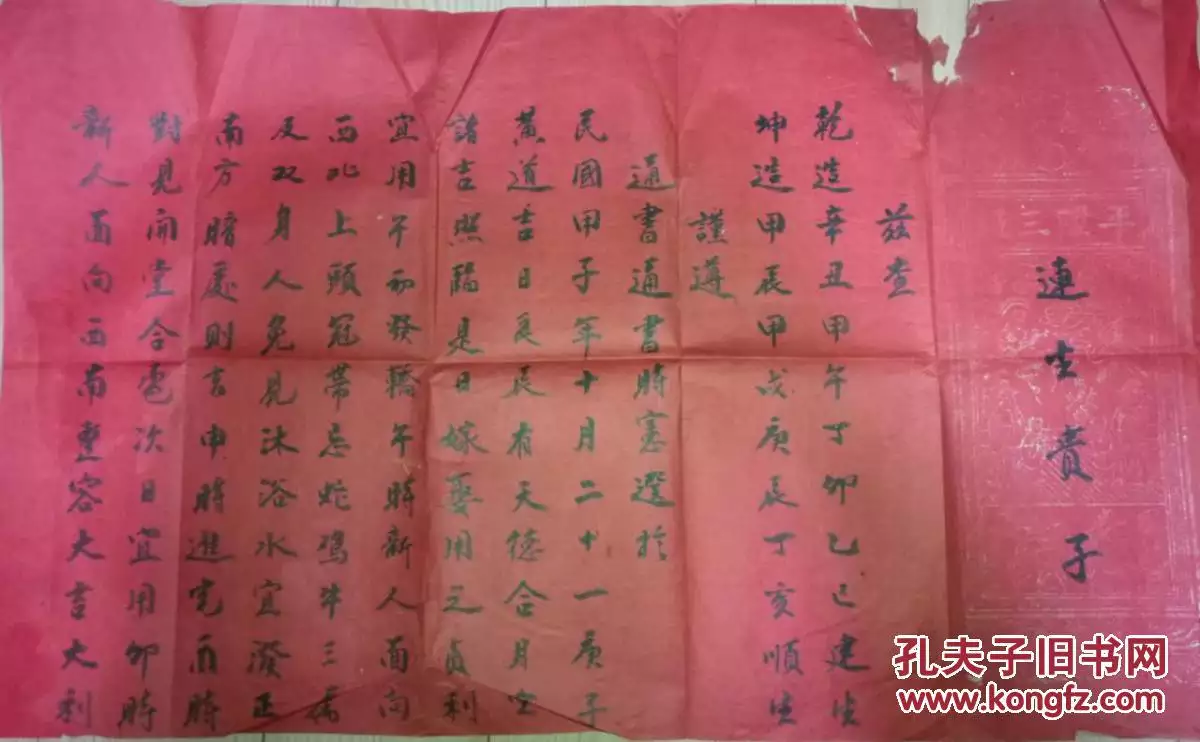 連生貴子
兹查
乾造辛丑甲午丁卯乙巳建生
坤造甲辰甲戌庚辰丁亥順生
謹遵
通書通書時憲選於
民國甲子年十月二十一庚子
黃道吉日良辰有天德合月空
諸吉照臨是日嫁娶用之貞利
宜用午初發轎午時新人面向
西北上頭冠帶忌蛇鸡牛三属
及双身人免見沐浴水宜潑正
南方暗處則吉申時進宅酉時
對見開堂合卺次日宜用卯時
新人面向西南整容大吉大利
孔夫子旧书网
www.kongfz.com